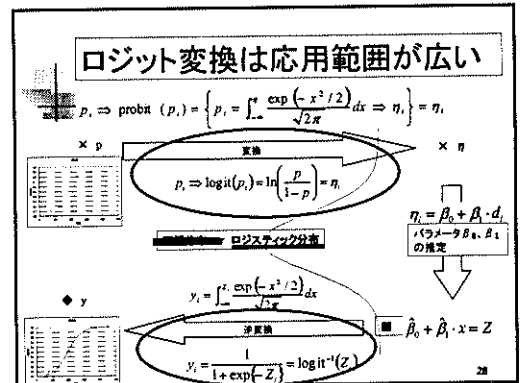 ロジット変換は応用範囲が広い
p_i ⇒ probit (p_i) = { p_i = ∫_{-∞}^{η_i} exp(-x²/2)/√2π dx ⇒ η_i } = η_i
× p
変換
× η
p_i ⇒ logit(p_i) = ln(p/(1-p)) = η_i
η_i = β_0 + β_1・d_i
パラメータβ_0、β_1
の推定
ロジスティック分布
◆ y
y_i = ∫_{-∞}^{Z_i} exp(-x²/2)/√2π dx
逆変換
β̂_0 + β̂_1・x = Z
y_i = 1/(1+exp{-Z_i}) = logit⁻¹(Z_i)
28